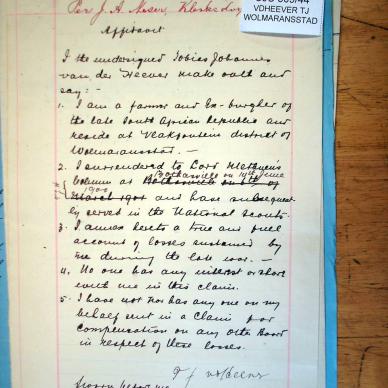 Per J. A. Neser, Klerksdorp
VDHEEVER TJ
WOLMARANSSTAD
Affidavit
I the undersigned Tobias Johannes
van der Heever make oath and
say: -
1. I am a farmer and Ex-burgher of
the late South African Republic and
reside at Vlakfontein district of
Wolmaransstad. -
2. I surrendered to Lord Methuen's
Bothasville on 14th June
Column at Bothasville on 14 of
1901
March 1901 and have subsequent
ly served in the National Scouts.
3. I annex hereto a true and full
account of losses sustained by
me during the late war. -
4. No one has any interest or share
with me in this claim.
5. I have not nor has any one on my
behalf sent in a claim for
compensation on any other Board
in respect of these losses.
T J vd Heever
Sworn before me